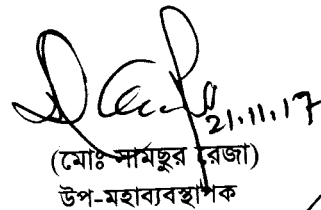 21.11.17
(মোঃ সামছুর রেজা)
উপ-মহাব্যবস্থাপক